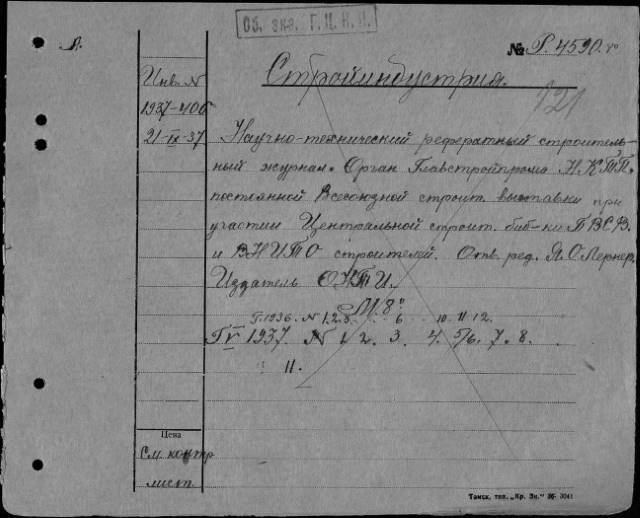 Об. экз. Г.Ц.К.П.
№ Р.4590.
Л.
Инв. N
1937-406
21-IX-37
Стройиндустрия.
121
Научно-технический реферативный строитель-
ный журнал. Орган Главстройпрома НКТП.
постоянной Всесоюзной строит. выставки при
участии Центральной строит. биб-ки ПВСВ.
и ВНИТО строителей. Отв. ред. Я.О Лернер.
Издатель ОНТИ.
М. 8°
Г.1936. N 1. 2. 3. 6 10. 11. 12.
Г V 1937 N 1. 2. 3. 4. 5/6. 7. 8.
11.
Цена
См. контр
лист.
Томск, тип. „Кр. Зн." 36-3041